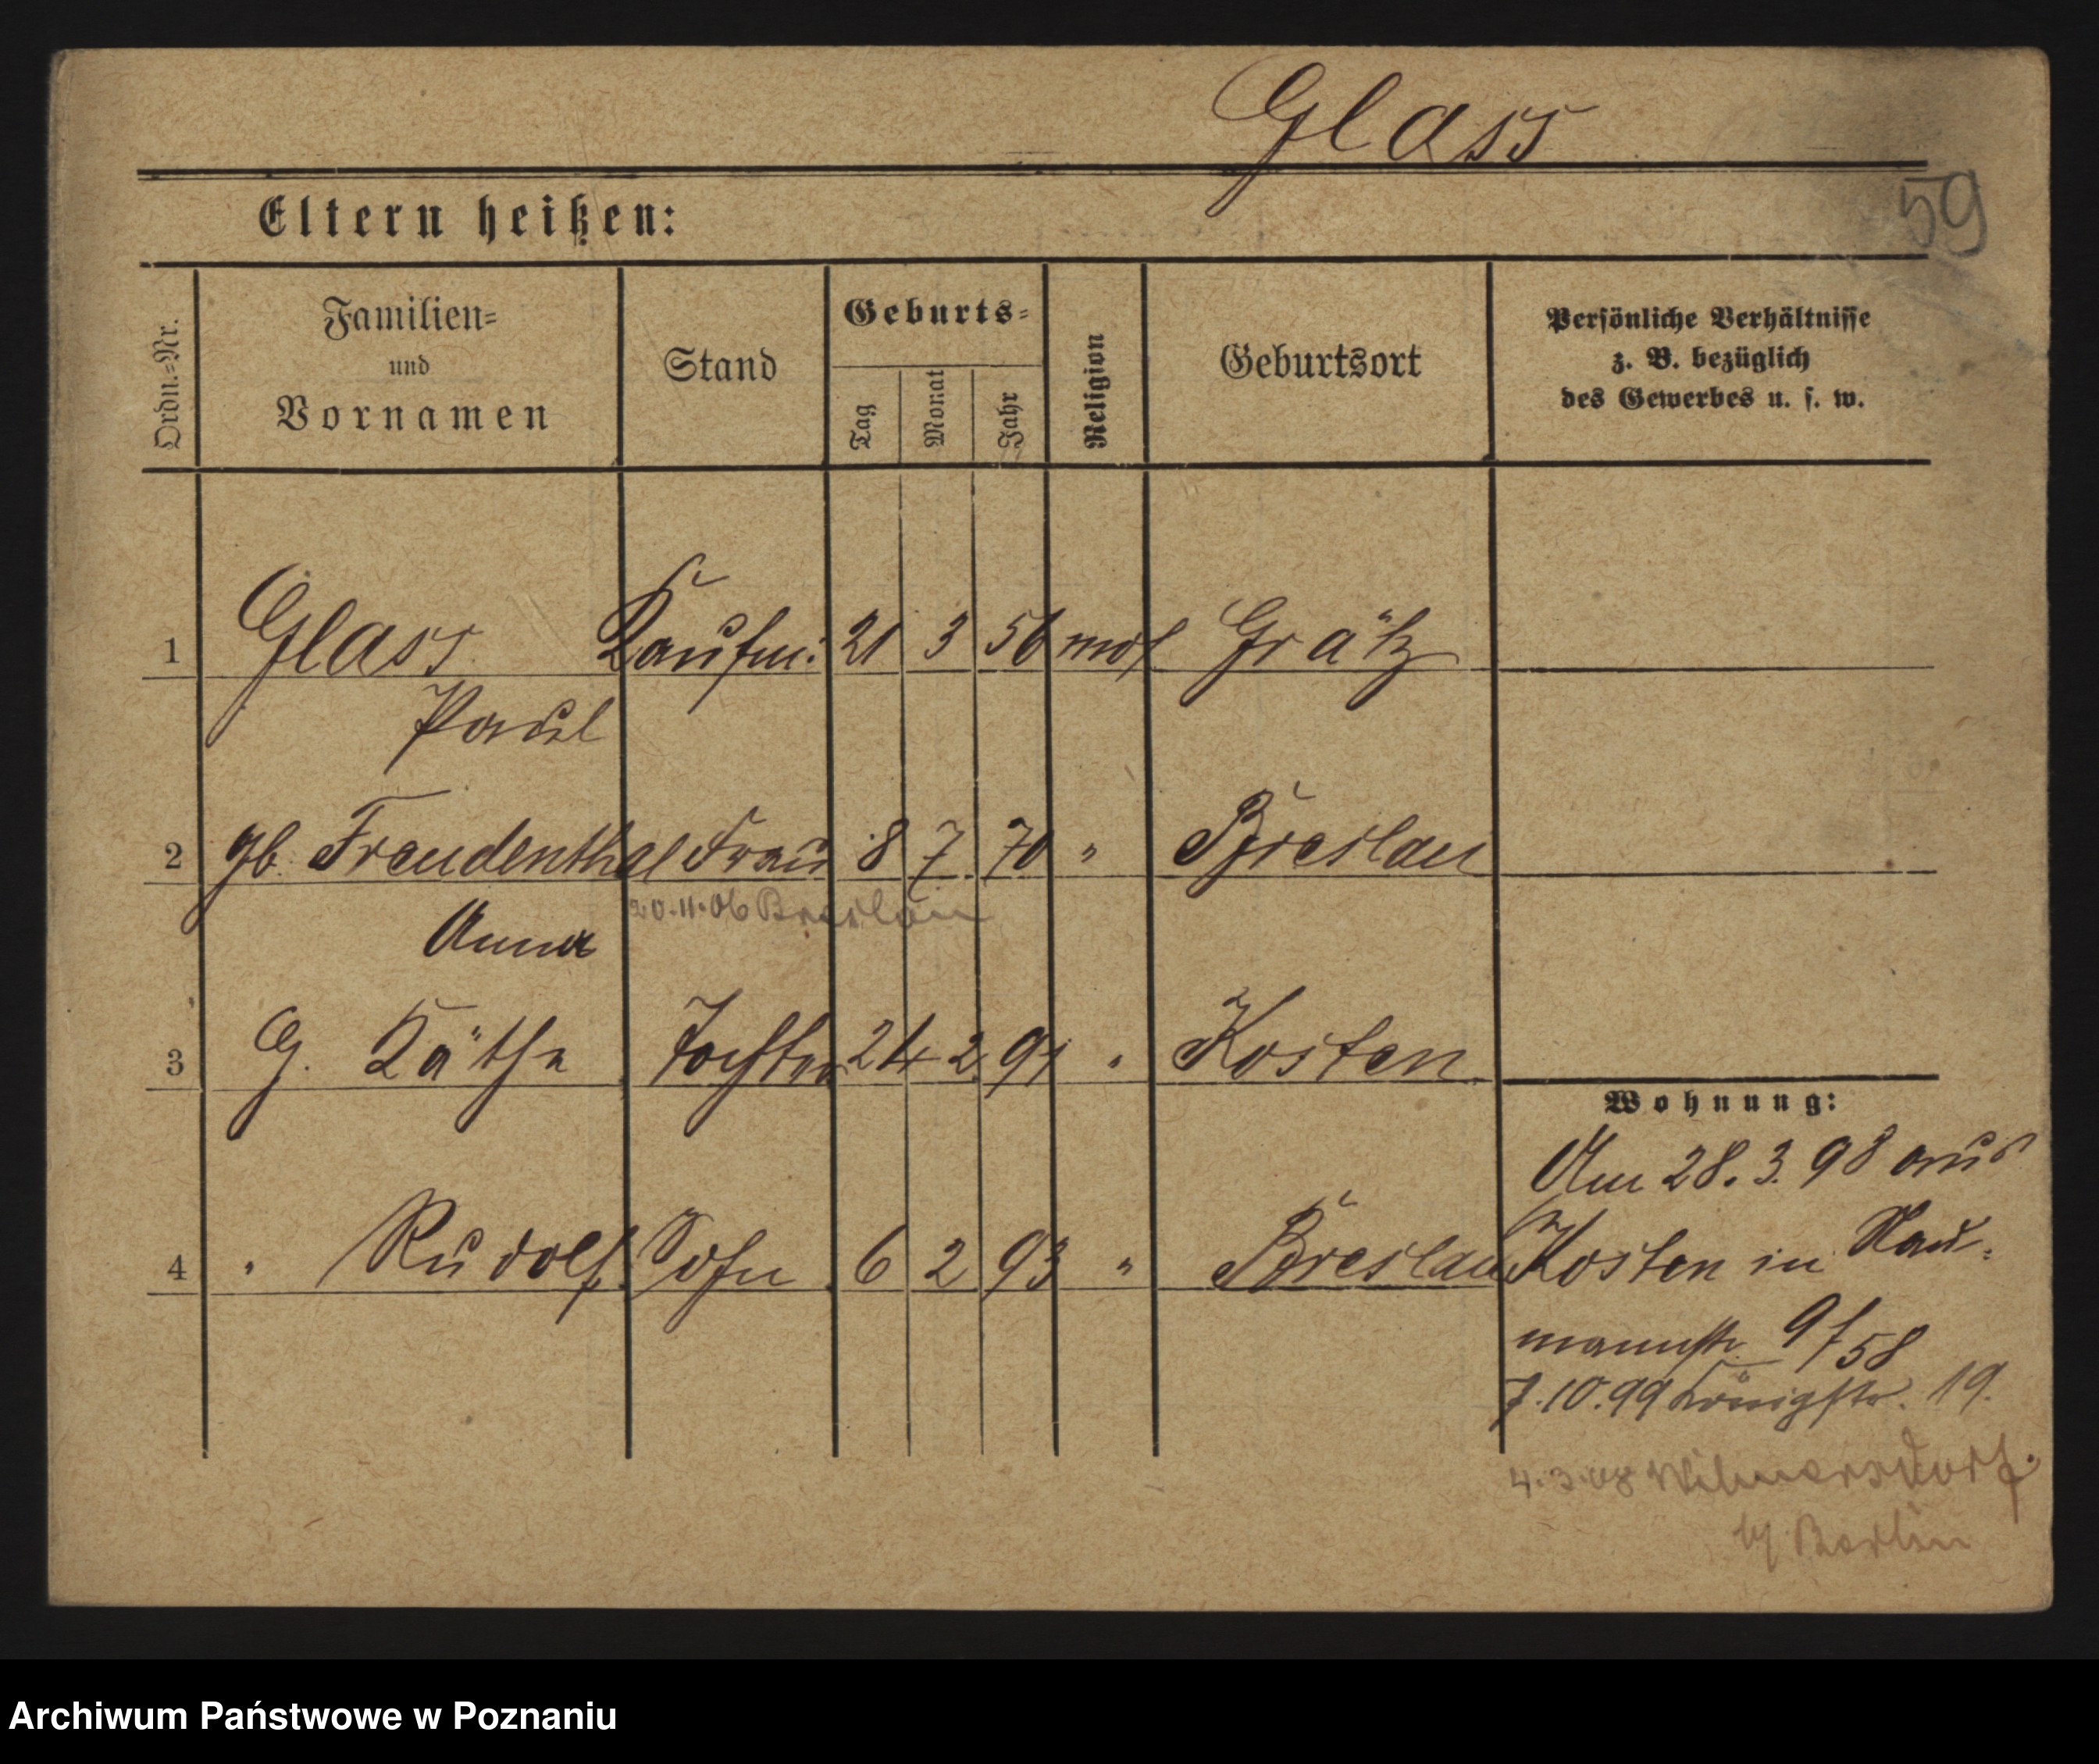 Glass
59
Eltern heißen:
Ordn.=Nr.
Familien=
und
Vornamen
Stand
Geburts=
Tag
Monat
Jahr
Religion
Geburtsort
Persönliche Verhältnisse
z. B. bezüglich
des Gewerbes u. s. w.
1 Glass Kaufm. 21 3 56 mos Grätz
Paul
2 gb. Freudenthal Frau 8 7 70 " Breslau
20.11.06 Breslau
Anna
3 G. Käthe Tochter 24 2 91 " Kosten
Wohnung:
Am 28.3.98 aus
4 " Rudolf Sohn 6 2 93 " Breslau
Kosten in Nau=
mannstr. 9/58
7.10.99 Königstr. 19.
4.3.08 Wilmersdorf
b/ Berlin
Archiwum Państwowe w Poznaniu